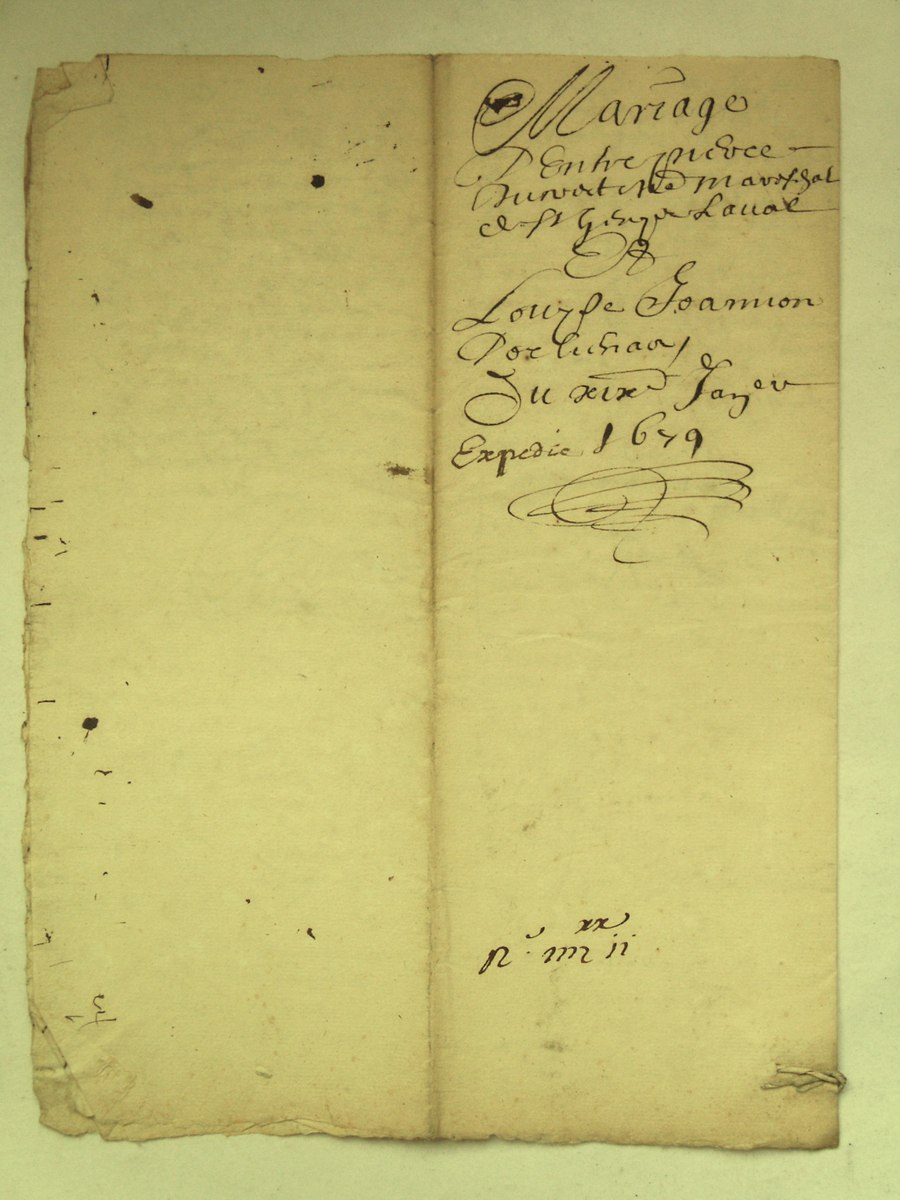 Mariage
D Entre pierre
mareschal
de st Genys Laual
Et
Louyse Joannon
Du xixe Janer
Expedie 1679
xx
N° iiii ii